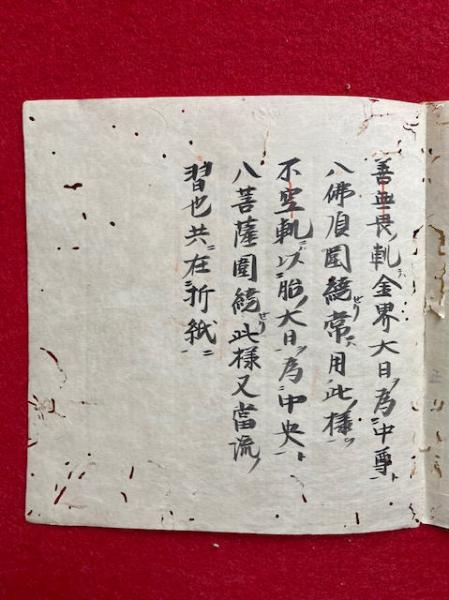 善無畏ノ軌ニハ金界大日ヲ為中尊ト
八佛頂圍繞せり常ニハ用此ノ様ヲ
不空軌ニハ以胎ノ大日ヲ為中央ト
八菩薩圍繞せり此様又當流ノ
習也共ニ在折紙ニ